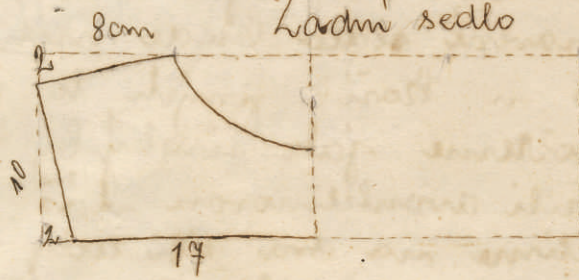 8cm Zadní sedlo
2
10
2
17